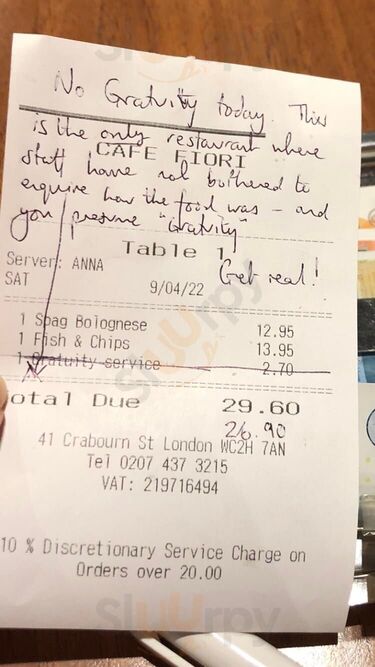 No Gratuity today. This
is the only restaurant where
CAFE FIORI
staff have not bothered to
enquire how the food was - and
you presume "Gratuity"
Table 1
Get real!
Server: ANNA
SAT 9/04/22
1 Spag Bolognese 12.95
1 Fish & Chips 13.95
1 Gratuity service 2.70
Total Due 29.60
26.90
41 Crabourn St London WC2H 7AN
Tel 0207 437 3215
VAT: 219716494
10 % Discretionary Service Charge on
Orders over 20.00
sluurpy
sluurpy
sluurpy